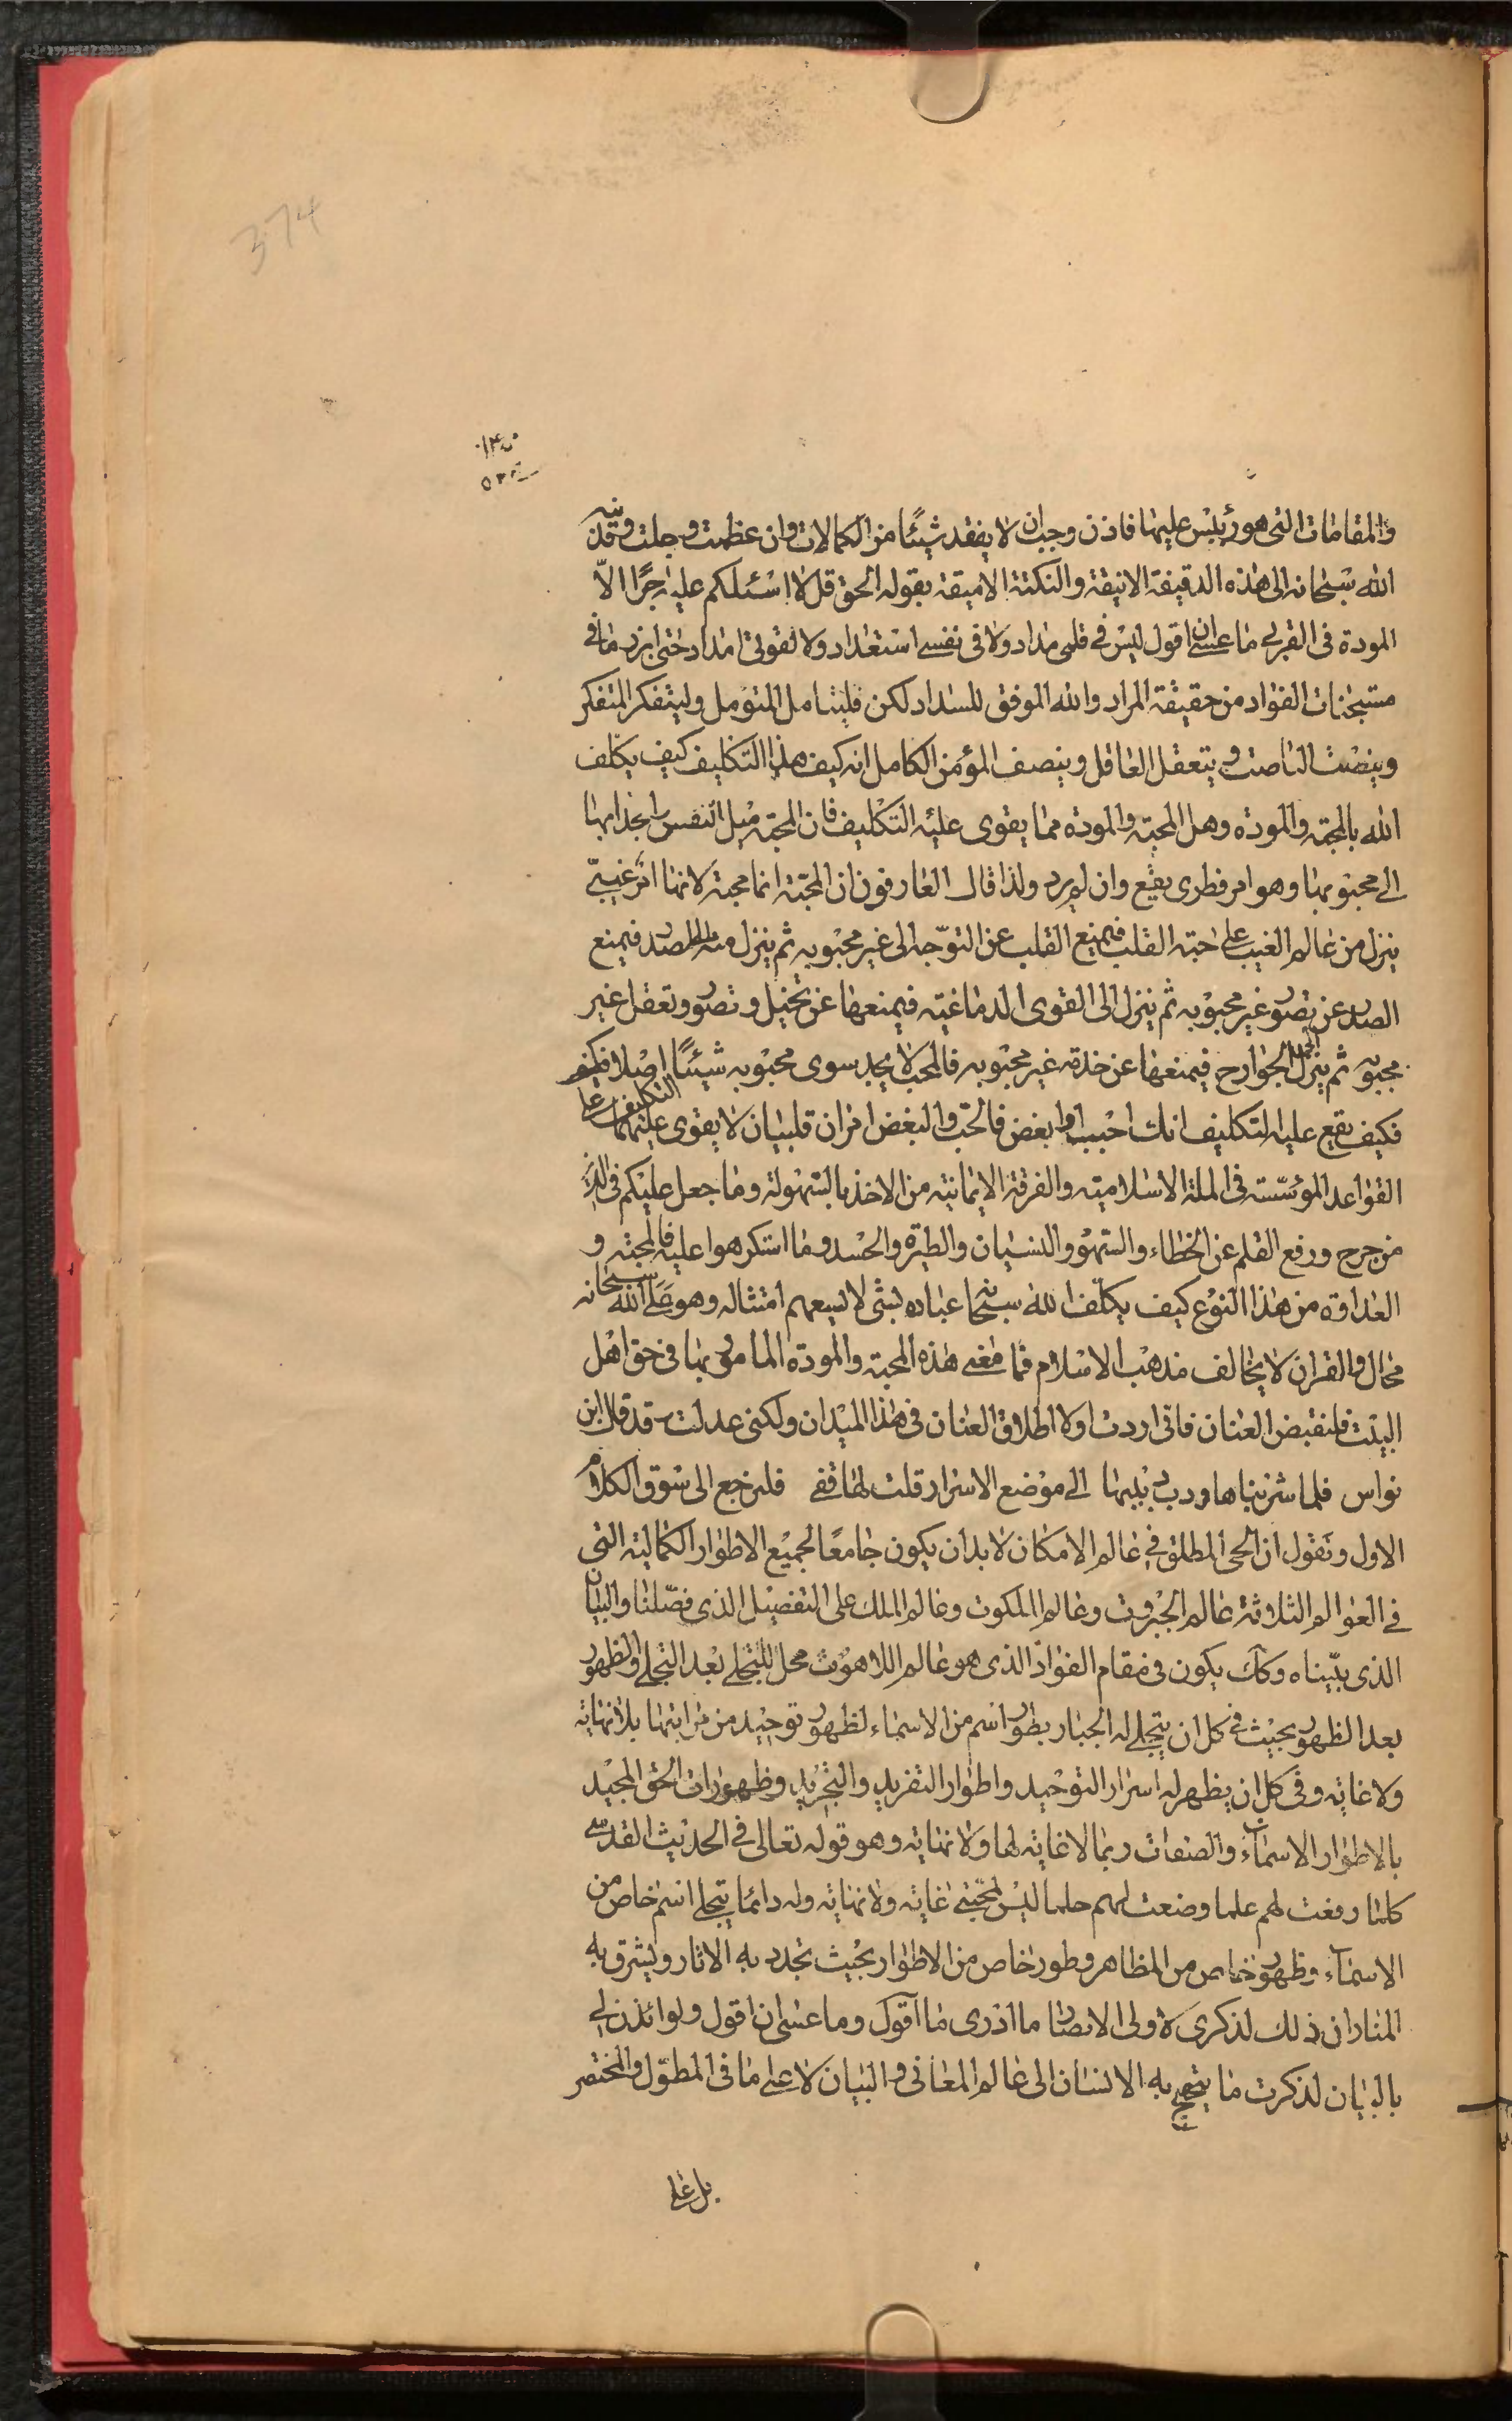 374
والمقامات التى هو رئيس عليها فاذن وجب ان لا يفقد شيئًا من الكمالات وان عظمت وجلت وقد نبه
الله سبحانه الى هذه الدقيقة الانيقة والنكتة الاميقة بقوله الحق قل لا اسئلكم عليه اجرًا الّا
المودة فى القربى ما عسى ان اقول ليس فى قلمى مداد ولا فى نفسى استعداد ولا لقوتى امداد حتى ابرز ما فى
مستجنات الفؤاد من حقيقة المراد والله الموفق للسداد لكن فليتامل المتومل وليتفكر المتفكر
وينصت الناصت و يتعقل العاقل وينصف المؤمن الكامل انه كيف هذا التكليف كيف يكلف
الله بالمحبة والمودة وهل المحبة والمودة مما يقوى عليه التكليف فان المحبة ميل النفس وانجذابها
الى محبوبها وهو امر فطرى يقع وان لم يرد ولذا قال العارفون ان المحبة انما محبة لانها اثر غيبىّ
ينزل من عالم الغيب على حبة القلب فيمنع القلب عن التوجه الى غير محبوبه ثم ينزل منه الى الصدر فيمنع
الصدر عن تصور غير محبوبه ثم ينزل الى القوى الدماغية فيمنعها عن تخيل وتصور وتعقل غير
محبوبه ثم ينزل الى الجوارح فيمنعها عن خدمة غير محبوبه فالمحب لا يجد سوى محبوبه شيئًا اصلا
فكيف يقع عليه التكليف انك احبب او ابغض فالحب والبغض امران قلبيان لا يقوى عليهما التكليف على
القواعد المؤسسة فى الملة الاسلامية والفرقة الايمانية من الاخذ بالسهولة وما جعل عليكم فى الدين
من حرج ورفع القلم عن الخطاء والسهو والنسيان والطيرة والحسد وما استكرهوا عليه فالمحبة و
العداوة من هذا النوع كيف يكلف الله سبحانه عباده بشئ لا يسعهم امتثاله وهو على الله سبحانه
محال والقران لا يخالف مذهب الاسلام فما معنى هذه المحبة والمودة المامور بها فى حق اهل
البيت فلنقبض العنان فانى اردت اولا اطلاق العنان فى هذا الميدان ولكنى عدلت قد قال ابن
نواس فلما شربناها ودب دبيبها الى موضع الاسرار قلت لها قفى فلنرجع الى سوق الكلام
الاول ونقول ان الحى المطلق فى عالم الامكان لا بد ان يكون جامعًا لجميع الاطوار الكمالية التى
فى العوالم الثلاثة عالم الجبروت وعالم الملكوت وعالم الملك على التفصيل الذى فصلنا والبيان
الذى بيّناه وكك يكون فى مقام الفؤاد الذى هو عالم اللاهوت محل للتجلى بعد التجلى والظهور
بعد الظهور بحيث فى كل ان يتجلى له الجبار بطور اسم من الاسماء لظهور توحيد من مراتبها بلا نهاية
ولا غاية وفى كل ان يظهر له اسرار التوحيد واطوار التفريد والتجريد وظهورات الحق المجيد
بالاطوار الاسماء والصفات ربما لا غاية لها ولا نهاية وهو قوله تعالى فى الحديث القدسى
كلما رفعت لهم علما وضعت لهم حلما ليس لمحبتى غاية ولا نهاية وله دائما يتجلى اسم خاص من
الاسماء وظهور خاص من المظاهر وطور خاص من الاطوار بحيث تجدد به الاثار ويشرق به
المنار ان ذلك لذكرى لاولى الابصار ما ادرى ما اقول وما عسى ان اقول ولو ائذن لى
بالبيان لذكرت ما به الانسان الى عالم المعانى والبيان لا على ما فى المطوّل والمختصر
بل على